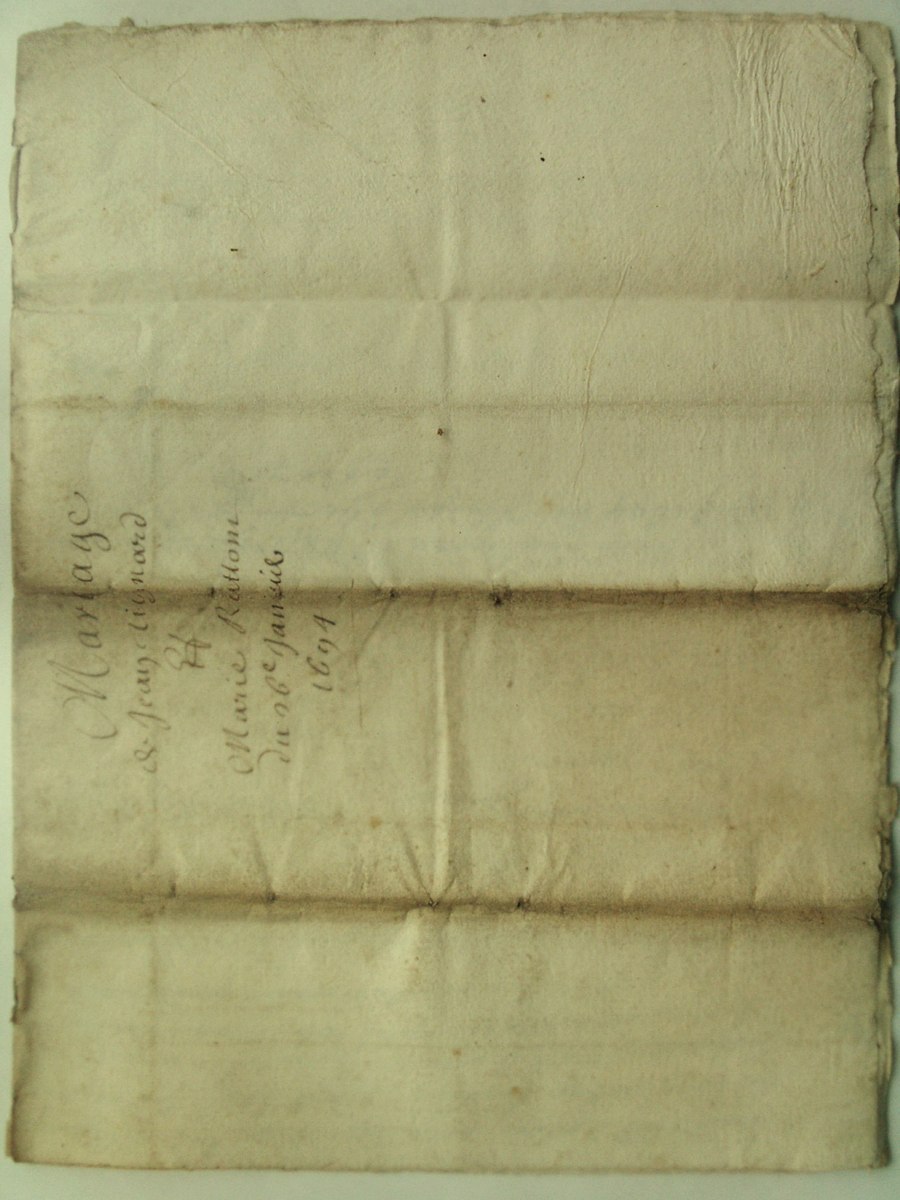 Mariage
de Jean Lignard
Et
Marie Rattom
du 26e Janvie
1694